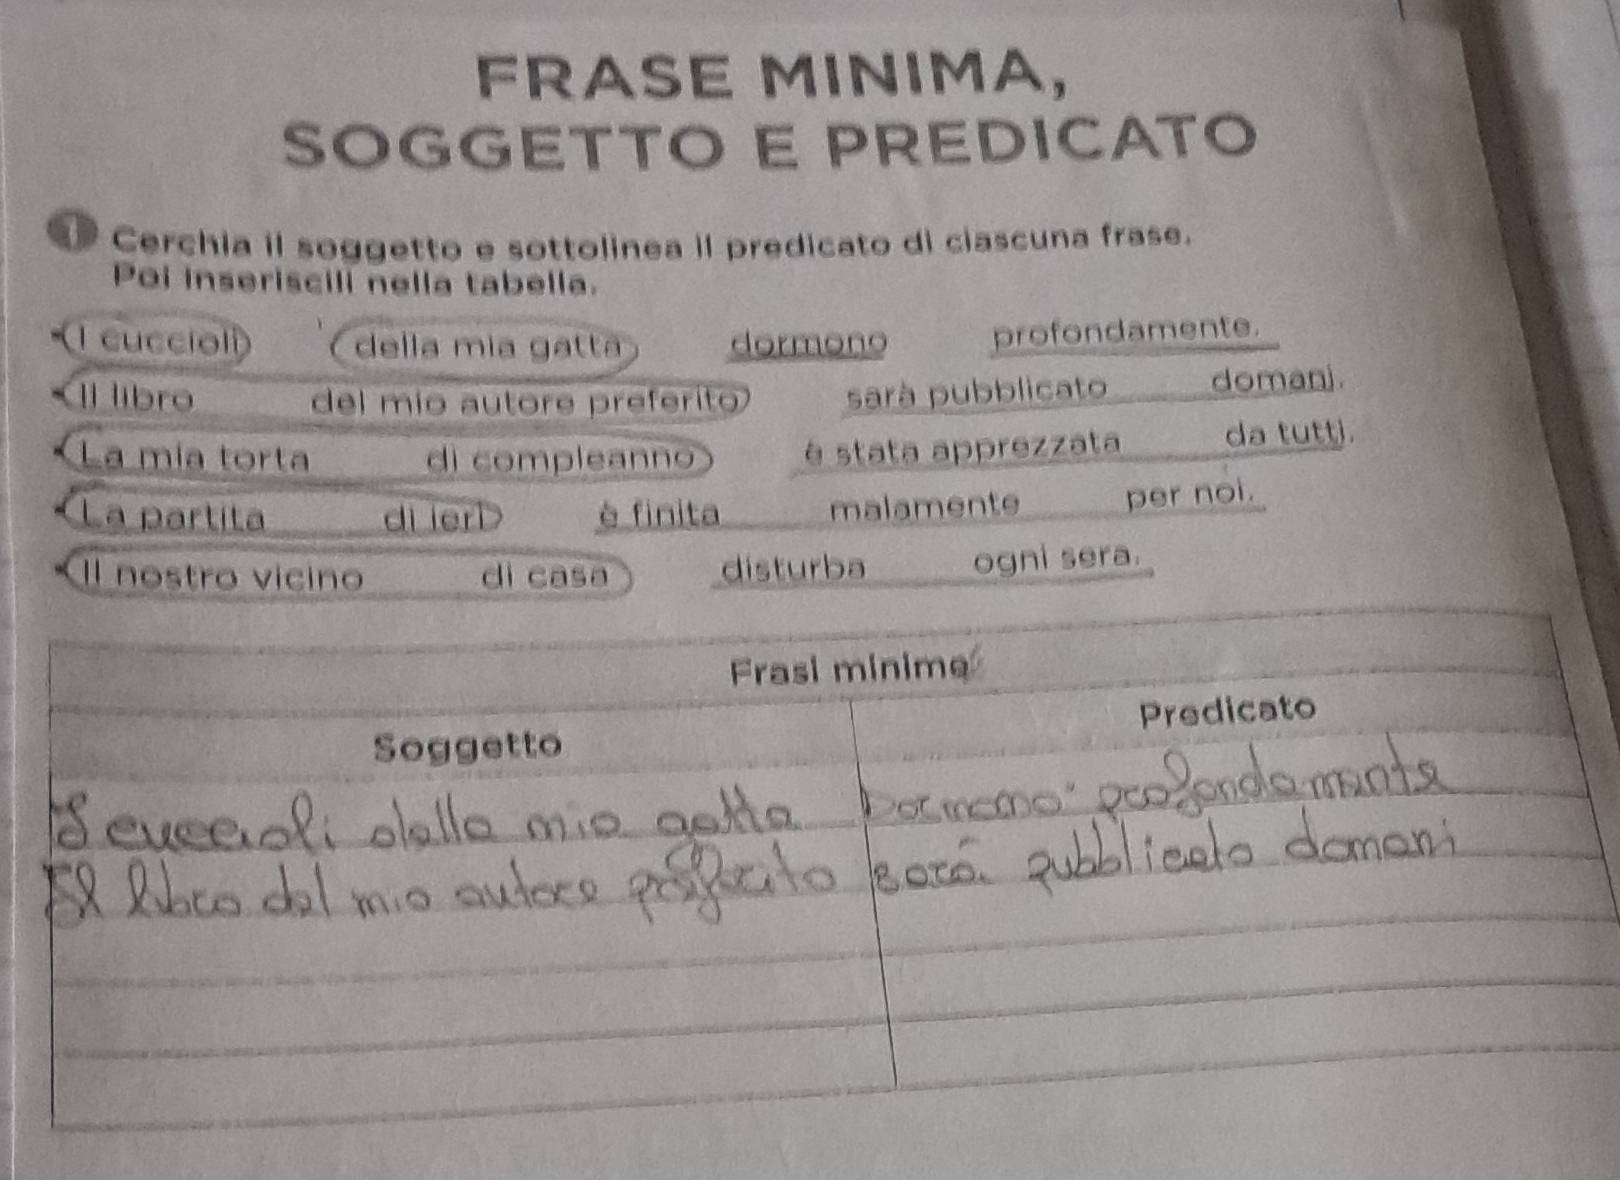 FRASE MINIMA,
SOGGETTO E PREDICATO
1 Cerchia il soggetto e sottolinea il predicato di ciascuna frase.
Poi inseriscili nella tabella.
• I cuccioli della mia gatta dormono profondamente.
• Il libro del mio autore preferito sarà pubblicato domani.
• La mia torta di compleanno è stata apprezzata da tutti.
• La partita di ieri è finita malamente per noi.
• Il nostro vicino di casa disturba ogni sera.
Frasi minime
Soggetto Predicato
I cuccioli della mia gatta Dormono profondamente
Il libro del mio autore preferito sarà pubblicato domani